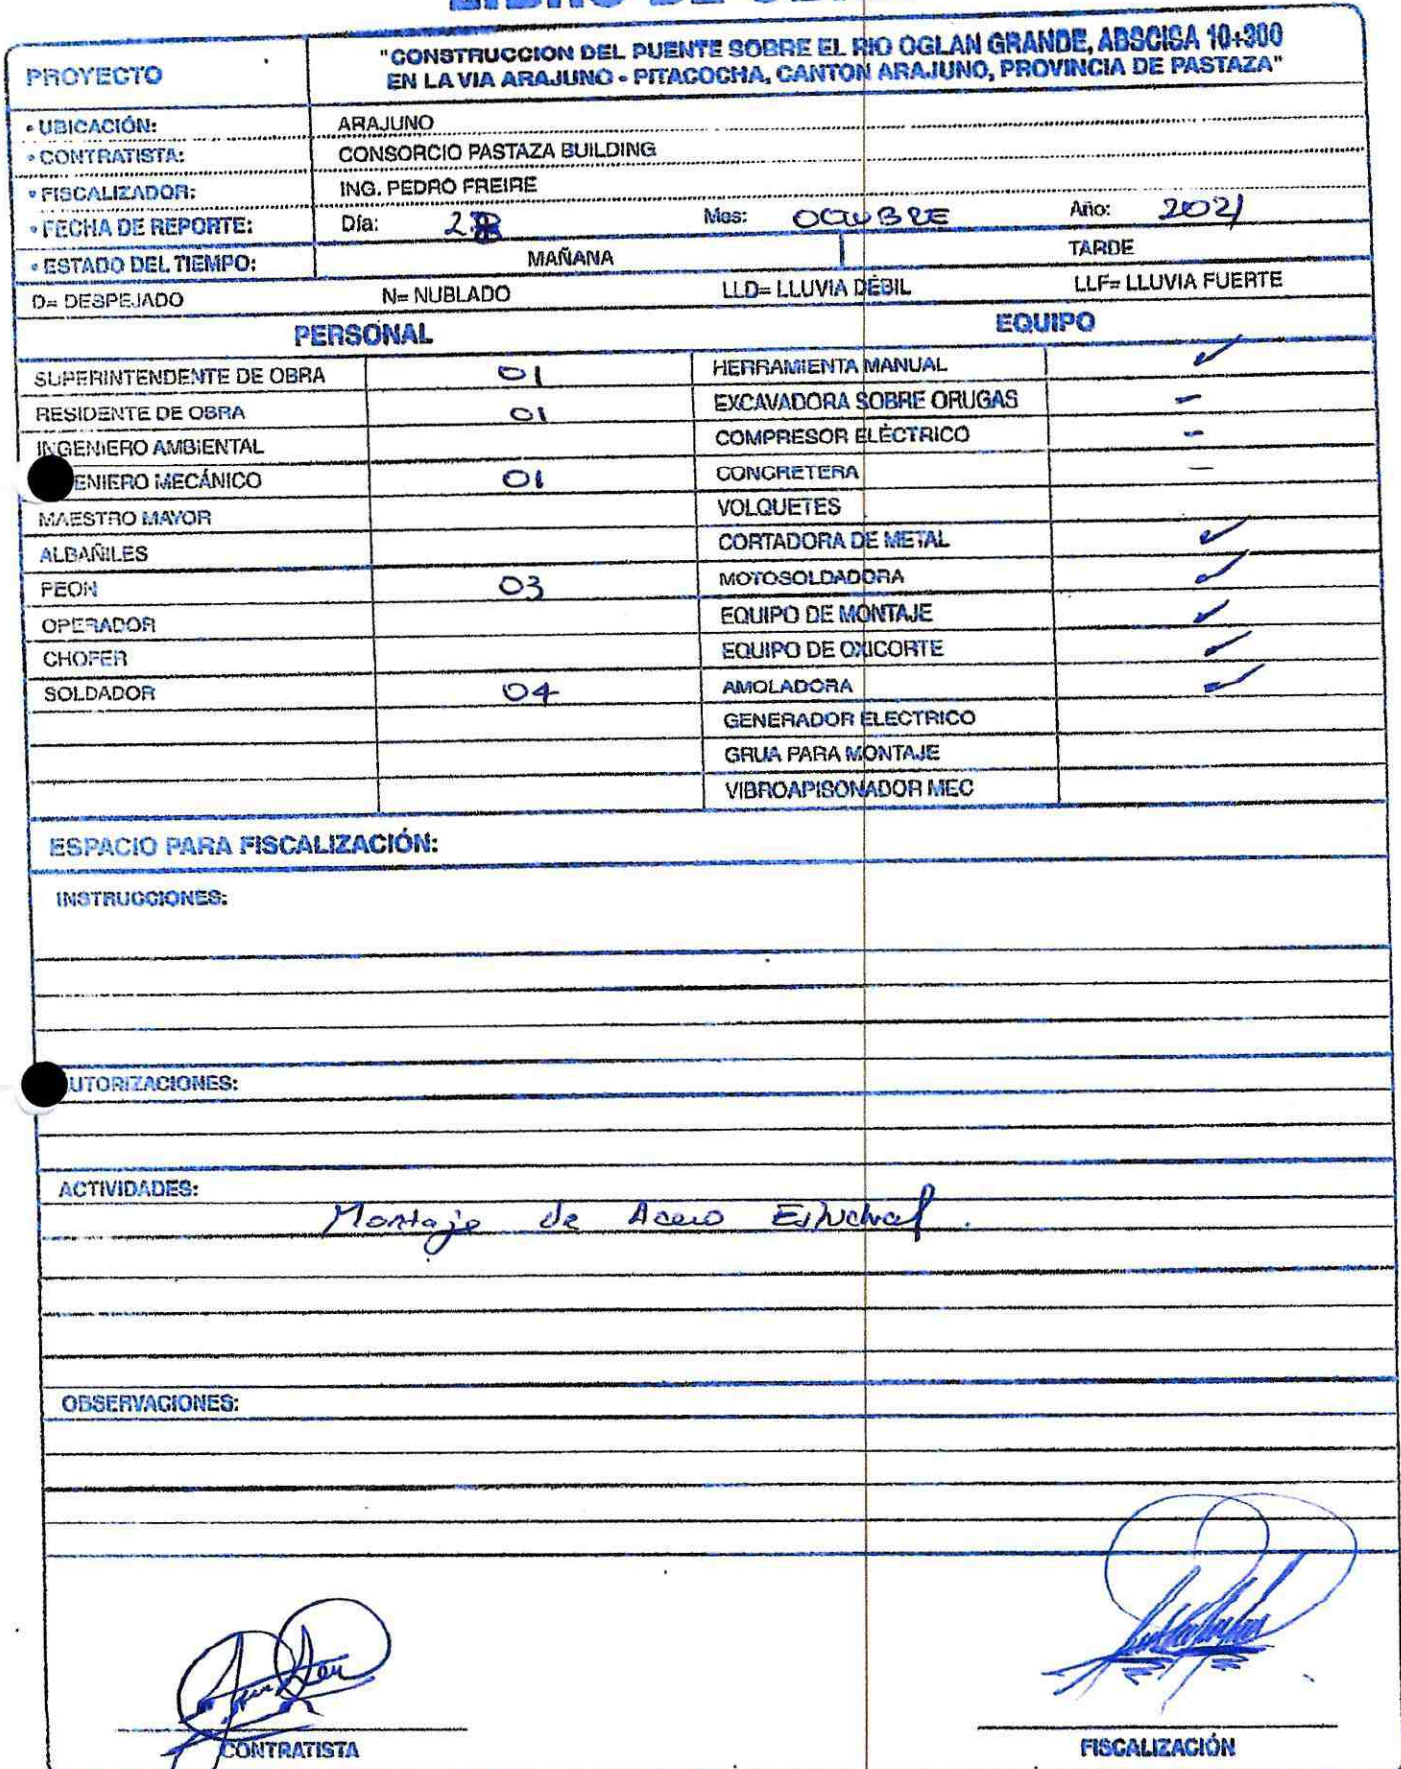 PROYECTO
"CONSTRUCCION DEL PUENTE SOBRE EL RIO OGLAN GRANDE, ABSCISA 10+300
EN LA VIA ARAJUNO - PITACOCHA, CANTON ARAJUNO, PROVINCIA DE PASTAZA"
• UBICACIÓN: ARAJUNO
• CONTRATISTA: CONSORCIO PASTAZA BUILDING
• FISCALIZADOR: ING. PEDRO FREIRE
• FECHA DE REPORTE: Día: Mes: OCTUBRE Año: 2021
• ESTADO DEL TIEMPO: MAÑANA TARDE
D= DESPEJADO N= NUBLADO LLD= LLUVIA DÉBIL LLF= LLUVIA FUERTE
PERSONAL EQUIPO
SUPERINTENDENTE DE OBRA 01 HERRAMIENTA MANUAL ✓
RESIDENTE DE OBRA 01 EXCAVADORA SOBRE ORUGAS -
INGENIERO AMBIENTAL COMPRESOR ELÉCTRICO -
ENIERO MECÁNICO 01 CONCRETERA -
MAESTRO MAYOR VOLQUETES
ALBAÑILES CORTADORA DE METAL ✓
PEON 03 MOTOSOLDADORA ✓
OPERADOR EQUIPO DE MONTAJE ✓
CHOFER EQUIPO DE OXICORTE ✓
SOLDADOR 04 AMOLADORA ✓
GENERADOR ELECTRICO
GRUA PARA MONTAJE
VIBROAPISONADOR MEC
ESPACIO PARA FISCALIZACIÓN:
INSTRUCCIONES:
UTORIZACIONES:
ACTIVIDADES:
Montaje de Acero Estructural.
OBSERVACIONES:
CONTRATISTA FISCALIZACIÓN